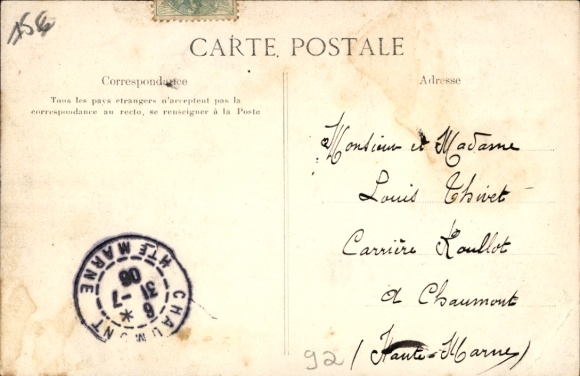 CARTE POSTALE
Correspondance
Tous les pays étrangers n'acceptent pas la
correspondance au recto, se renseigner à la Poste
Adresse
Monsieur et Madame
Louis Thivet
Carrière Roullot
à Chaumont
(Haute-Marne)
92
CHAUMONT
HTE MARNE
6
31 -7
06